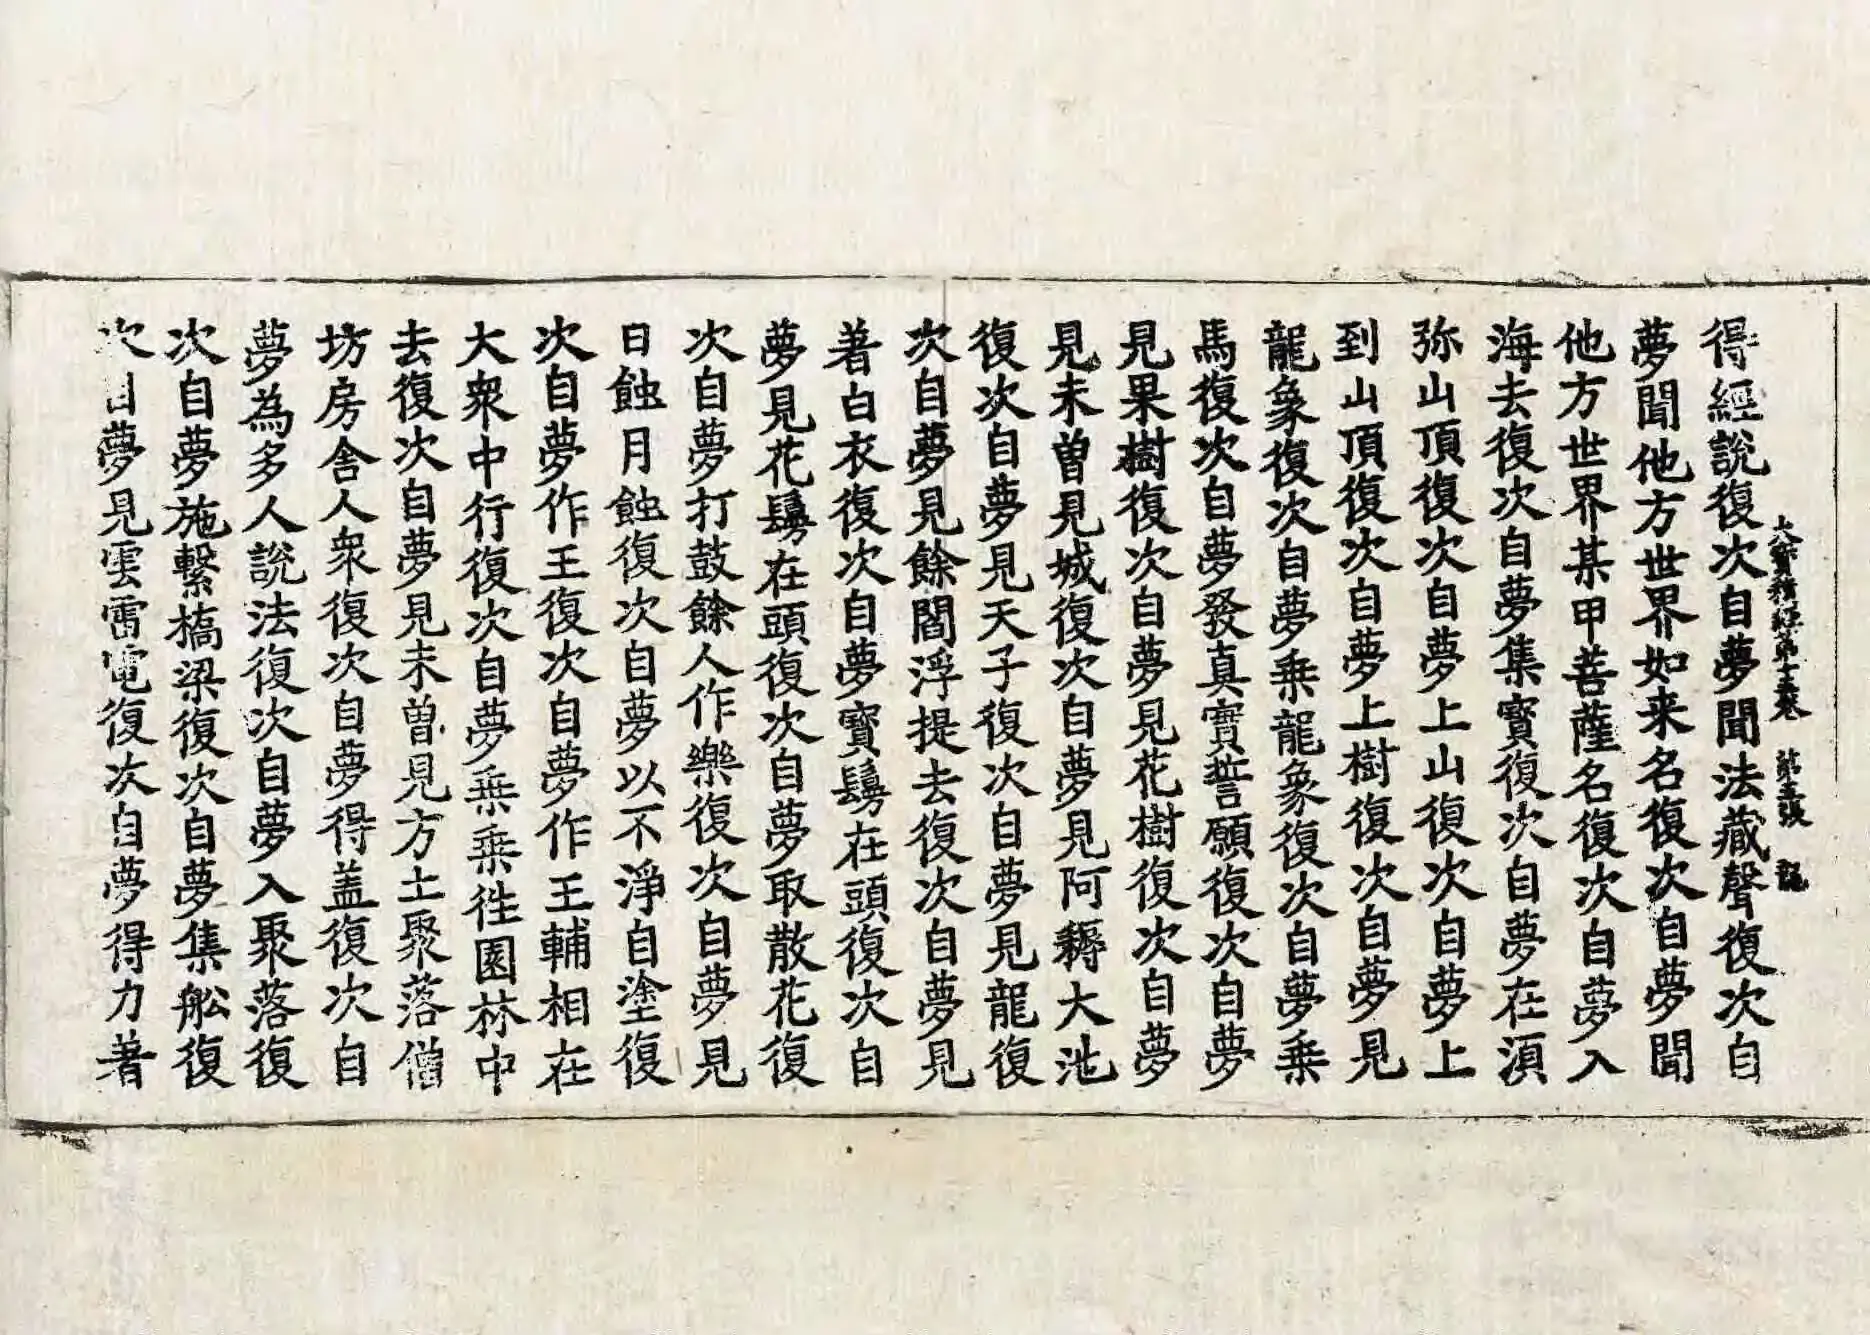 大寶積經第十五卷 第五張 龍
得經說復次自夢聞法藏聲復次自
夢聞他方世界如来名復次自夢聞
他方世界某甲菩薩名復次自夢入
海去復次自夢集寶復次自夢在湏
弥山頂復次自夢上山復次自夢上
到山頂復次自夢上樹復次自夢見
龍象復次自夢乗龍象復次自夢乗
馬復次自夢發真實誓願復次自夢
見果樹復次自夢見花樹復次自夢
見未曽見城復次自夢見阿耨大池
復次自夢見天子復次自夢見龍復
次自夢見餘閻浮提去復次自夢見
著白衣復次自夢寶鬘在頭復次自
夢見花鬘在頭復次自夢取散花復
次自夢打鼓餘人作樂復次自夢見
日蝕月蝕復次自夢以不淨自塗復
次自夢作王復次自夢作王輔相在
大衆中行復次自夢乗乗徃園林中
去復次自夢見未曽見方土聚落僧
坊房舍人衆復次自夢得盖復次自
夢為多人說法復次自夢入聚落復
次自夢施繫橋梁復次自夢集舩復
次自夢見雲雷電復次自夢得力著